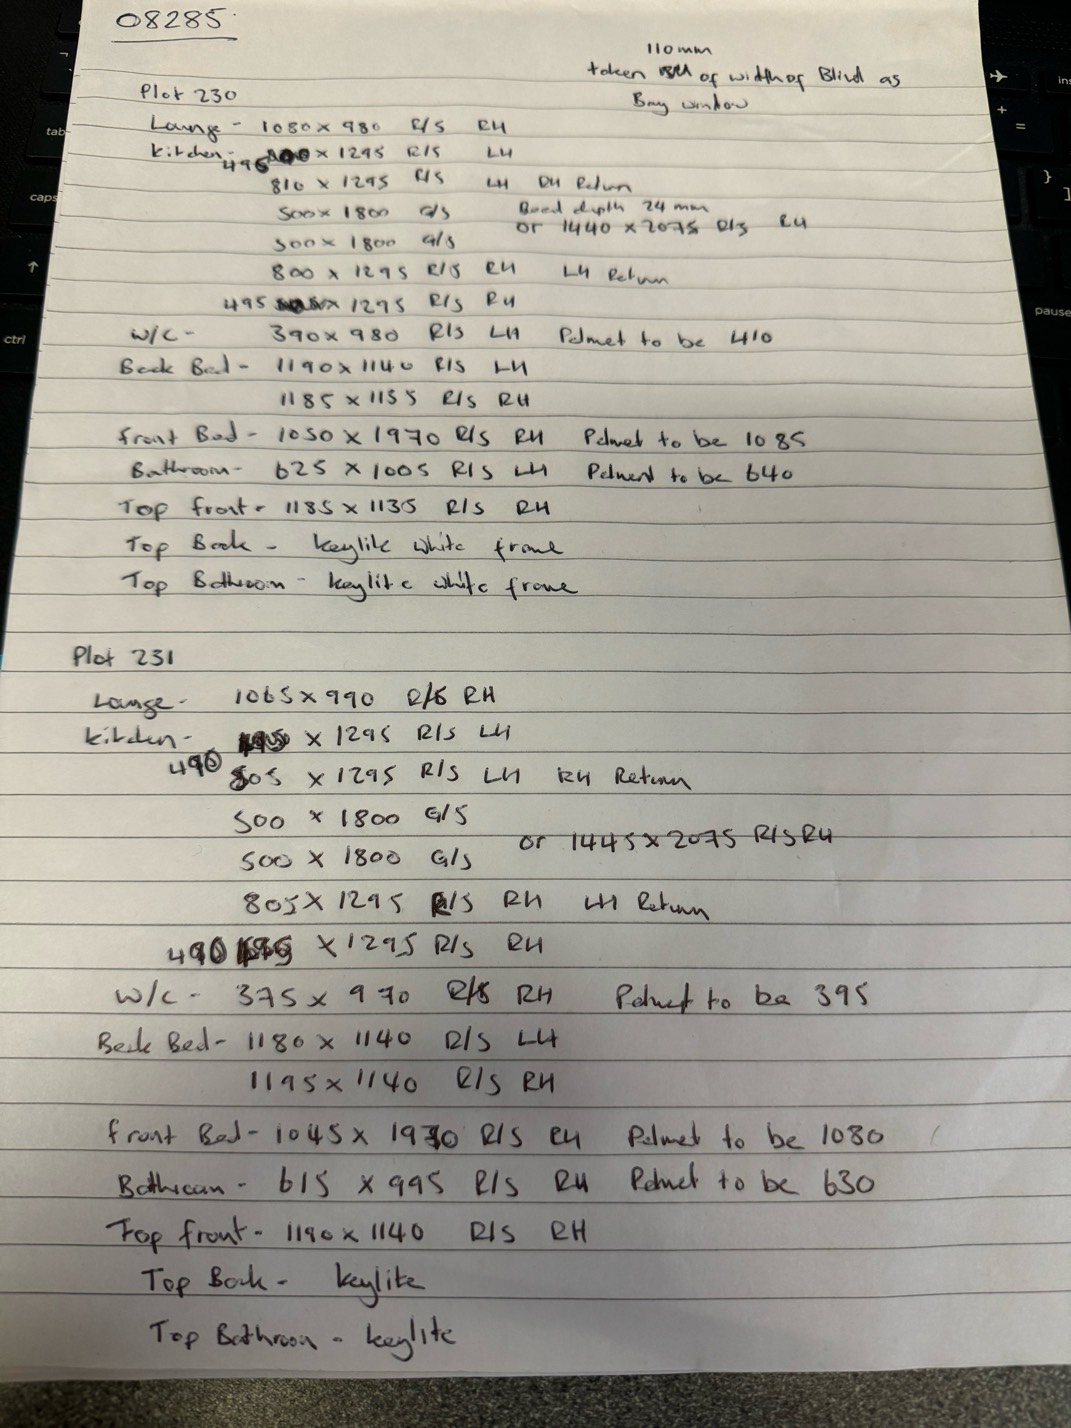 08285
110mm
taken of width of Blind as
Bay window
Plot 230
Lounge - 1080 x 980 R/S RH
Kitchen - 495 x 1295 R/S LH
810 x 1295 R/S LH RH Return
500 x 1800 G/S Bead depth 24 mm
or 1440 x 2075 R/S RH
500 x 1800 G/S
800 x 1295 R/S RH LH Return
495 x 1295 R/S RH
W/C - 390 x 980 R/S LH Pelmet to be 410
Back Bed - 1190 x 1140 R/S LH
1185 x 1135 R/S RH
Front Bed - 1050 x 1970 R/S RH Pelmet to be 1085
Bathroom - 625 x 1005 R/S LH Pelment to be 640
Top front - 1185 x 1135 R/S RH
Top Back - keylite white frame
Top Bathroom - keylite white frame
Plot 231
Lounge - 1065 x 990 R/S RH
Kitchen - 490 x 1295 R/S LH
805 x 1295 R/S LH RH Return
500 x 1800 G/S
or 1445 x 2075 R/S RH
500 x 1800 G/S
805 x 1295 R/S RH LH Return
490 x 1295 R/S RH
W/C - 375 x 970 R/S RH Pelmet to be 395
Back Bed - 1180 x 1140 R/S LH
1195 x 1140 R/S RH
Front Bed - 1045 x 1970 R/S RH Pelmet to be 1080
Bathroom - 615 x 995 R/S RH Pelmet to be 630
Top front - 1190 x 1140 R/S RH
Top Back - keylite
Top Bathroom - keylite